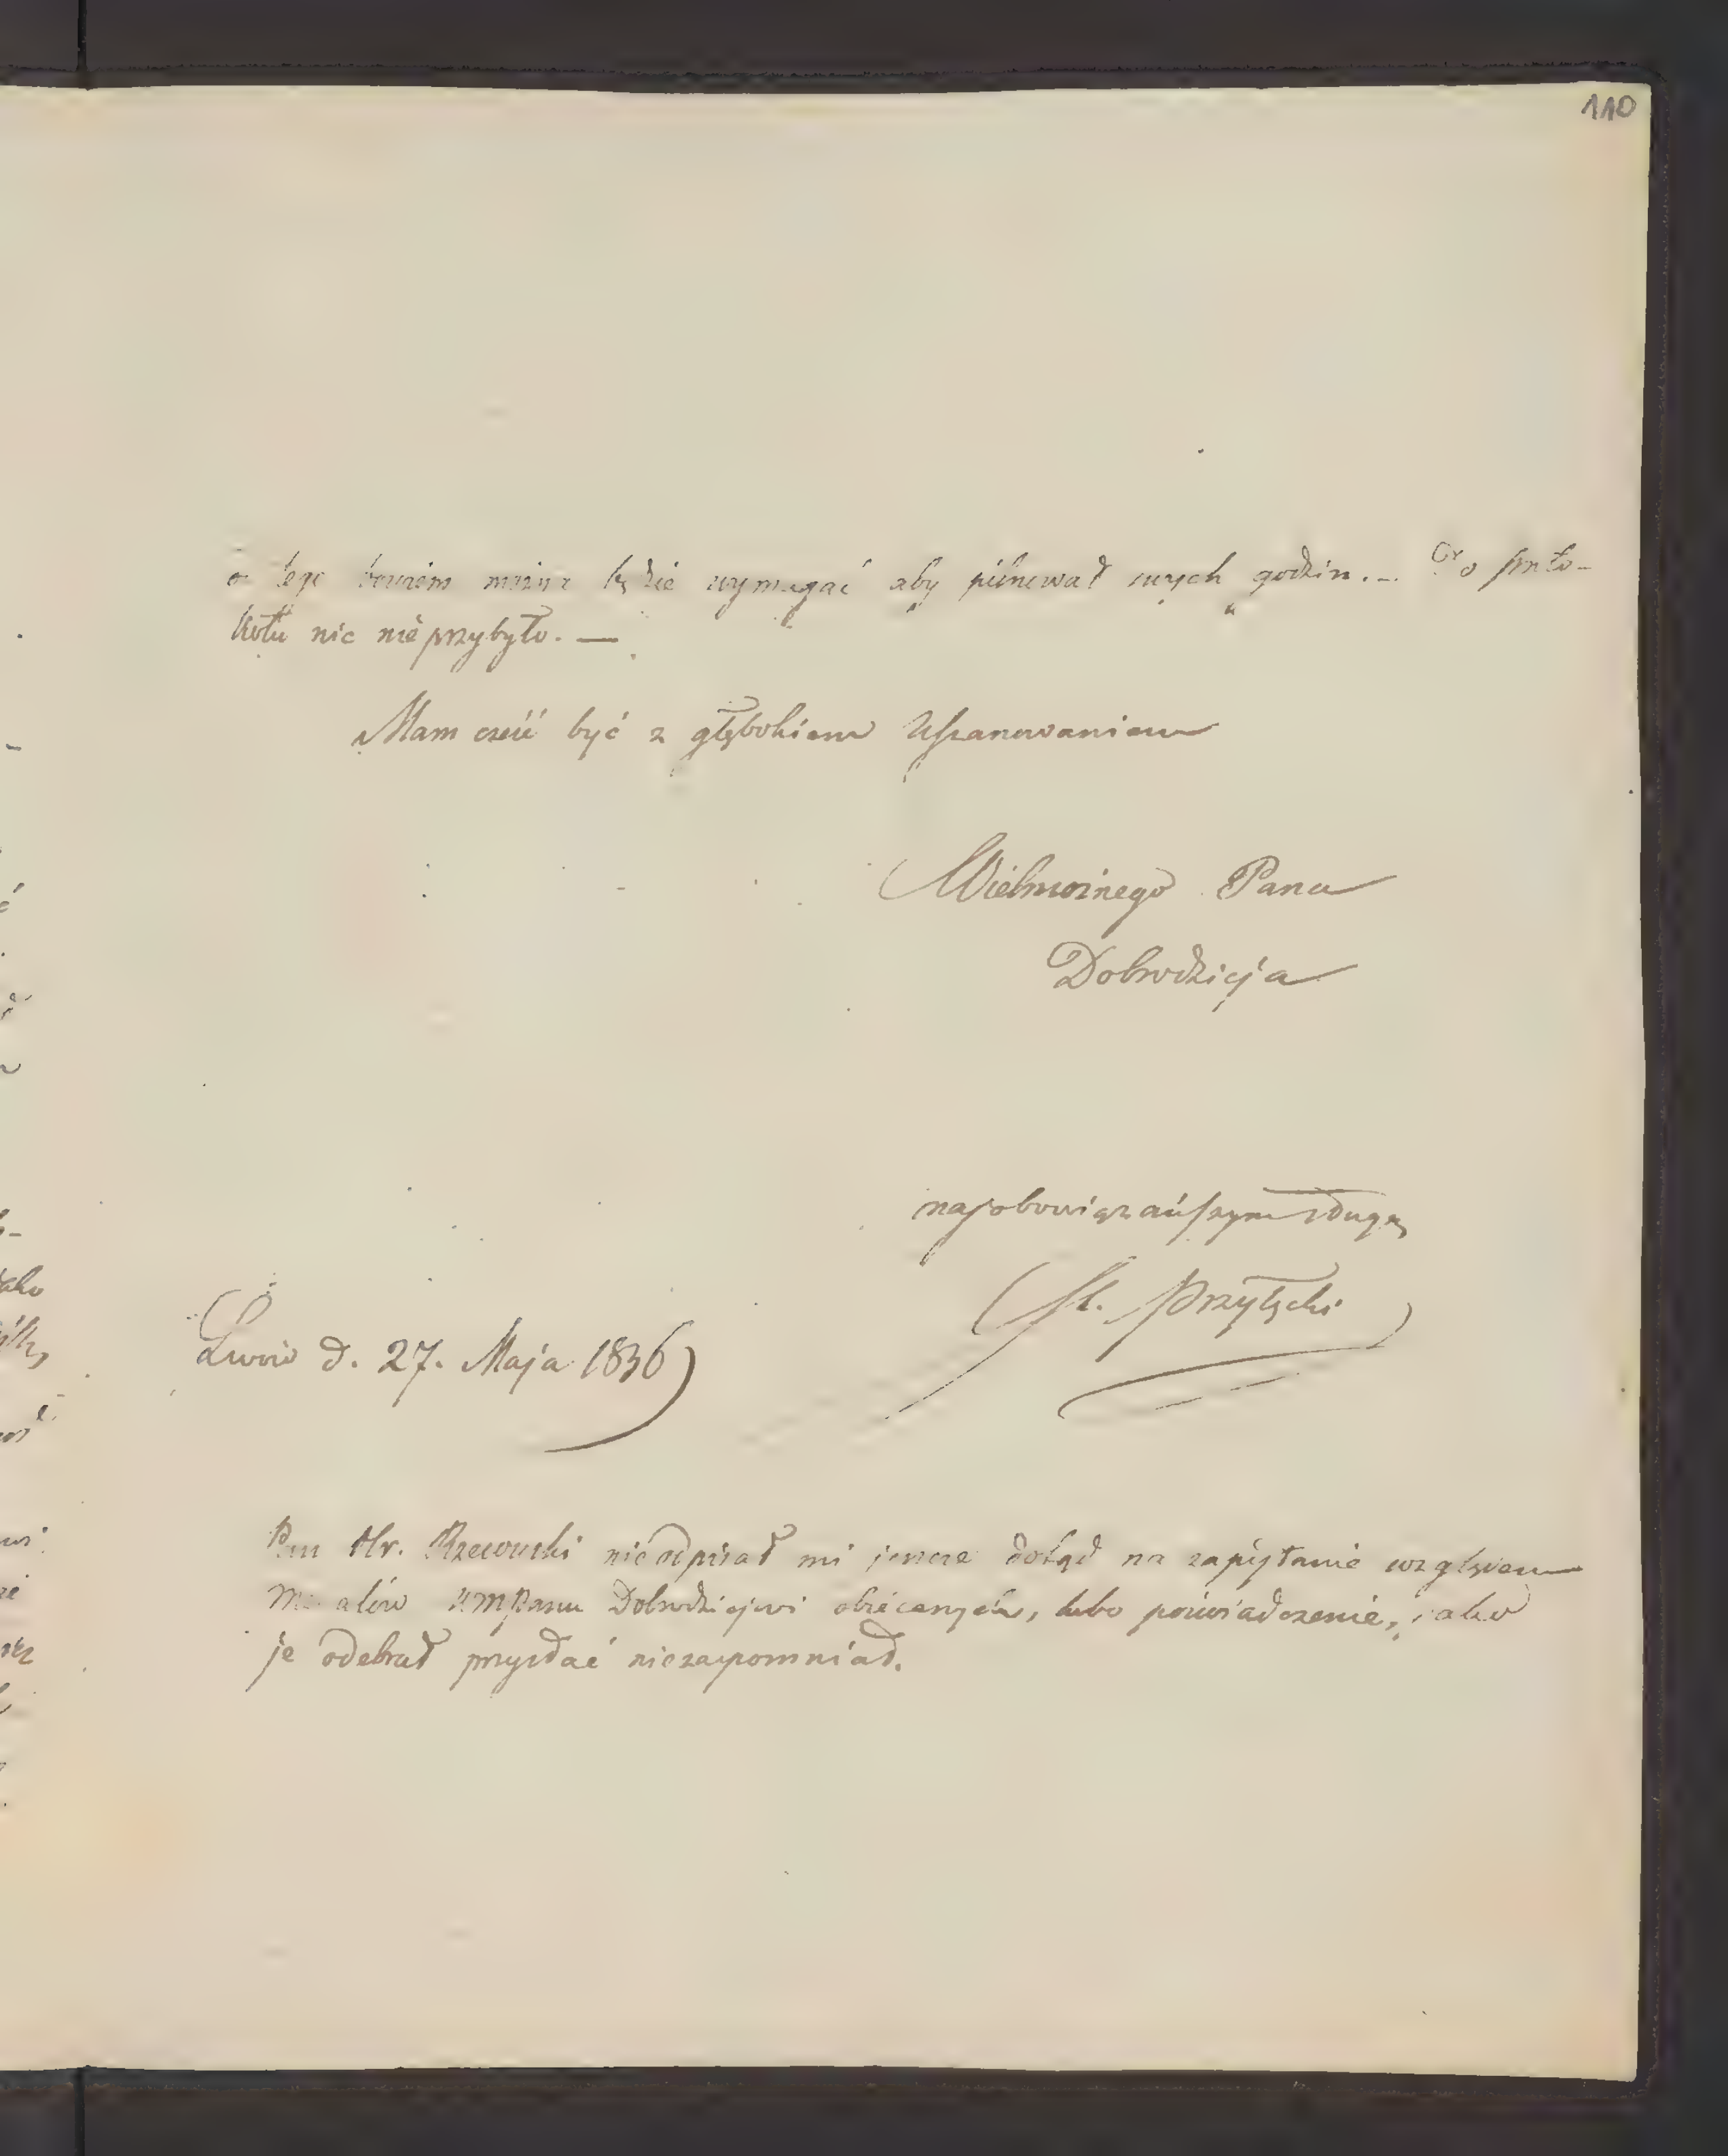 110
tego bowiem można będzie wymagać aby pilnował swych godzin. — Do proto-
kołu nic nieprzybyło. —
Mam cześć być z głębokiem Uszanowaniem
Wielmożnego Pana
Dobrodzieja
najobowiązańszym sługą
St. Przyłęcki
Lwów d. 27. Maja 1836
Pan Hr. Rzewuski nieodpisał mi jeszcze dotąd na zapytanie względem
Panu Dobrodziejowi obiecanych, lubo poświadczenie, jako
je odebrał przysłać niezapomniał.